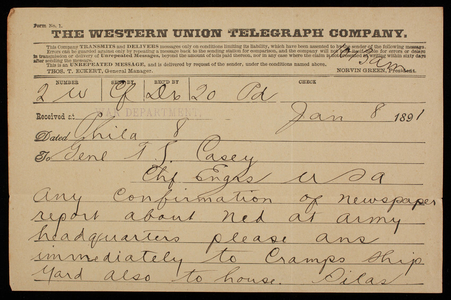 Form No. 1.
THE WESTERN UNION TELEGRAPH COMPANY.
This Company TRANSMITS and DELIVERS messages only on conditions limiting its liability, which have been assented to by the sender of the following message.
Errors can be guarded against only by repeating a message back to the sending station for comparison, and the company will not hold itself liable for errors or delays
in transmission or delivery of Unrepeated Messages, beyond the amount of tolls paid thereon, nor in any case where the claim is not presented in writing within sixty days
after sending the message.
This is an UNREPEATED MESSAGE, and is delivered by request of the sender, under the conditions named above.
THOS. T. ECKERT, General Manager. NORVIN GREEN, President.
NUMBER SENT BY REC'D BY CHECK
2 W 20 Pd
WAR DEPARTMENT
Received at Jan 8 1891
Dated Phila 8
To Genl T L Casey
Chf Engrs U S A
Any confirmation of newspaper
report about Ned at army
headquarters please ans
immediately to Cramps Ship
Yard also to house. Silas